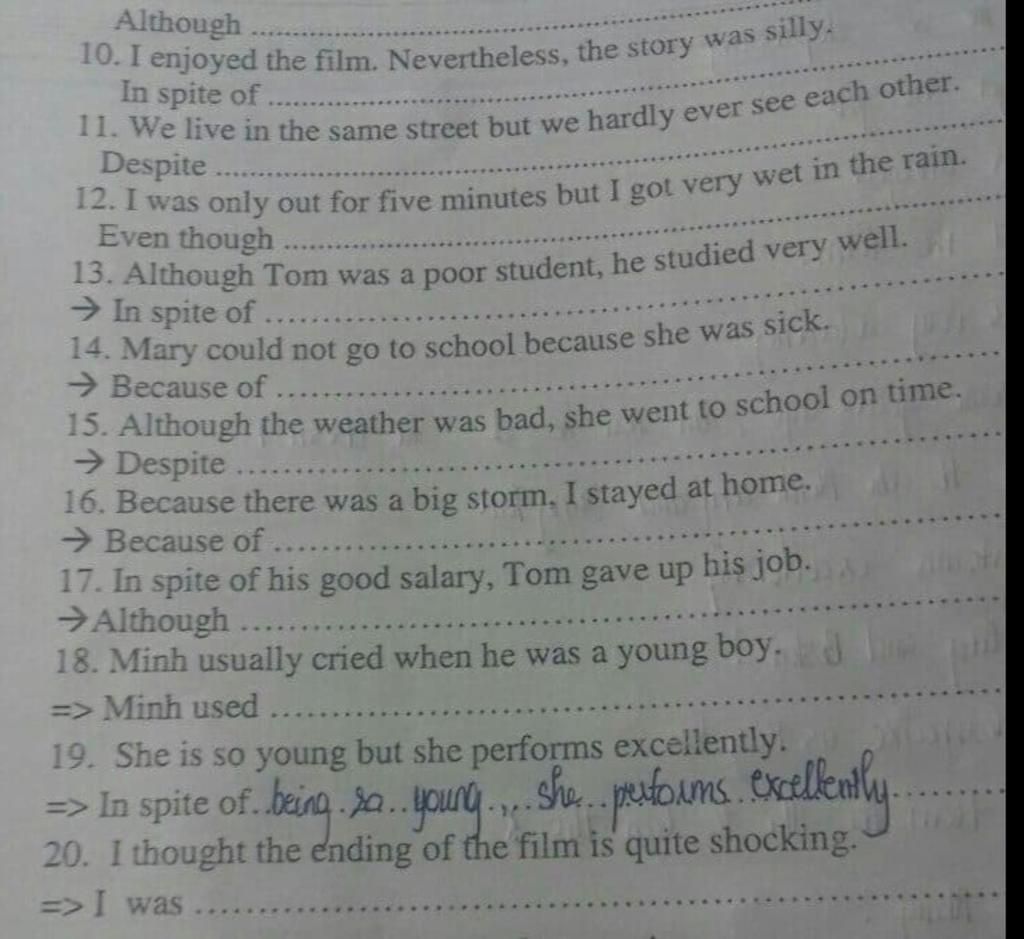 Although ..........
10. I enjoyed the film. Nevertheless, the story was silly.
In spite of ..........
11. We live in the same street but we hardly ever see each other.
Despite ..........
12. I was only out for five minutes but I got very wet in the rain.
Even though ..........
13. Although Tom was a poor student, he studied very well.
→ In spite of ..........
14. Mary could not go to school because she was sick.
→ Because of ..........
15. Although the weather was bad, she went to school on time.
→ Despite ..........
16. Because there was a big storm, I stayed at home.
→ Because of ..........
17. In spite of his good salary, Tom gave up his job.
→Although ..........
18. Minh usually cried when he was a young boy.
=> Minh used ..........
19. She is so young but she performs excellently.
=> In spite of..being.so..young..,..she..performs..excellently..........
20. I thought the ending of the film is quite shocking.
=> I was ..........